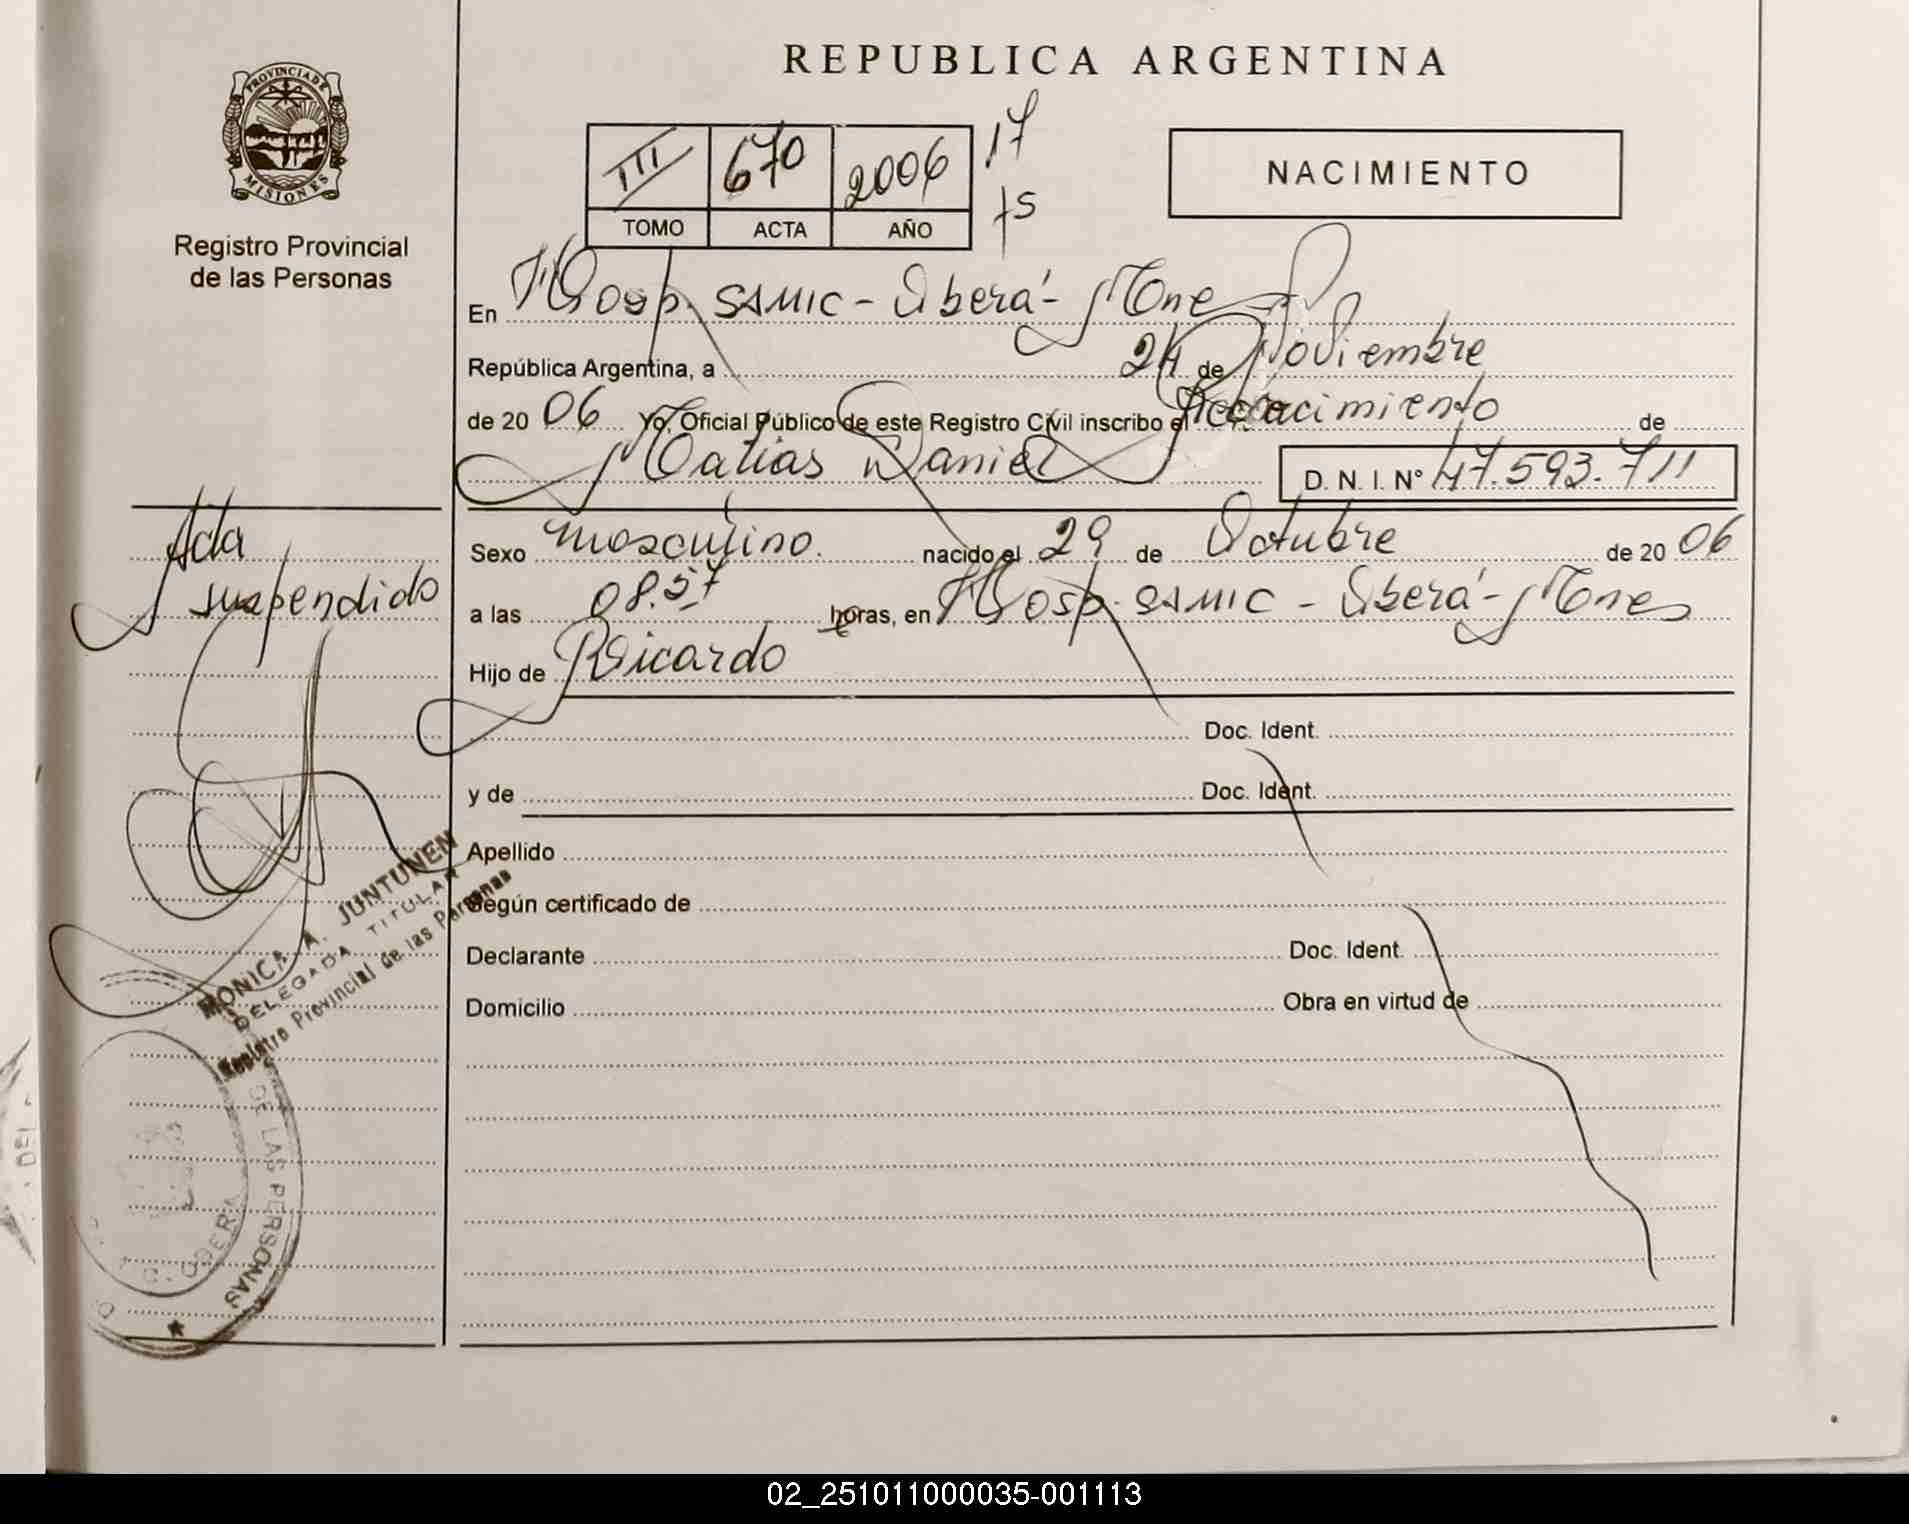 REPUBLICA ARGENTINA
PROVINCIA DE
MISIONES
Registro Provincial
de las Personas
III 670 2006 17
TOMO ACTA AÑO
NACIMIENTO
En Hosp. SAMIC - Oberá - Mnes
República Argentina, a 24 de Noviembre
de 20 06 Yo, Oficial Público de este Registro Civil inscribo el Nacimiento de
Matias Daniel D. N. I. N° 47.593.711
Acta
suspendido
Sexo masculino. nacido el 29 de Octubre de 20 06
a las 08.57 horas, en Hosp. SAMIC - Oberá - Mnes
Hijo de Ricardo
Doc. Ident.
y de Doc. Ident.
Apellido
Según certificado de
Declarante Doc. Ident.
Domicilio Obra en virtud de
MONICA A. JUNTUNEN
DELEGADA TITULAR
Registro Provincial de las Personas
DE LAS PERSONAS
OBERA
02_251011000035-001113